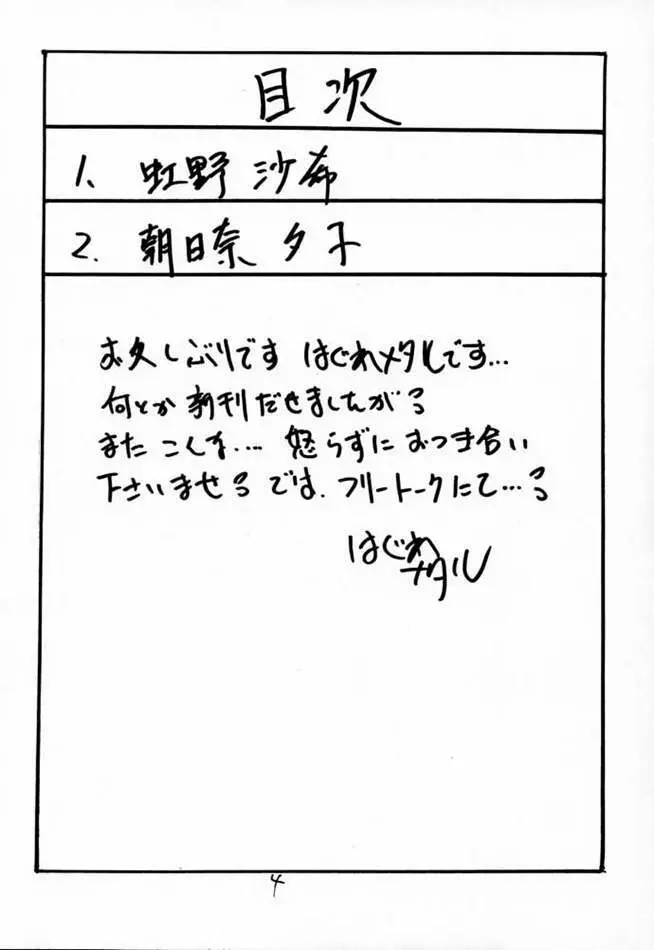 目次
1. 虹野 沙希
2. 朝日奈 夕子
お久しぶりです はぐれメタルです…
何とか 新刊だせましたが
また こんな…. 怒らずに おつき合い
下さいませ では. フリートークにて…
はぐれ
メタル
4